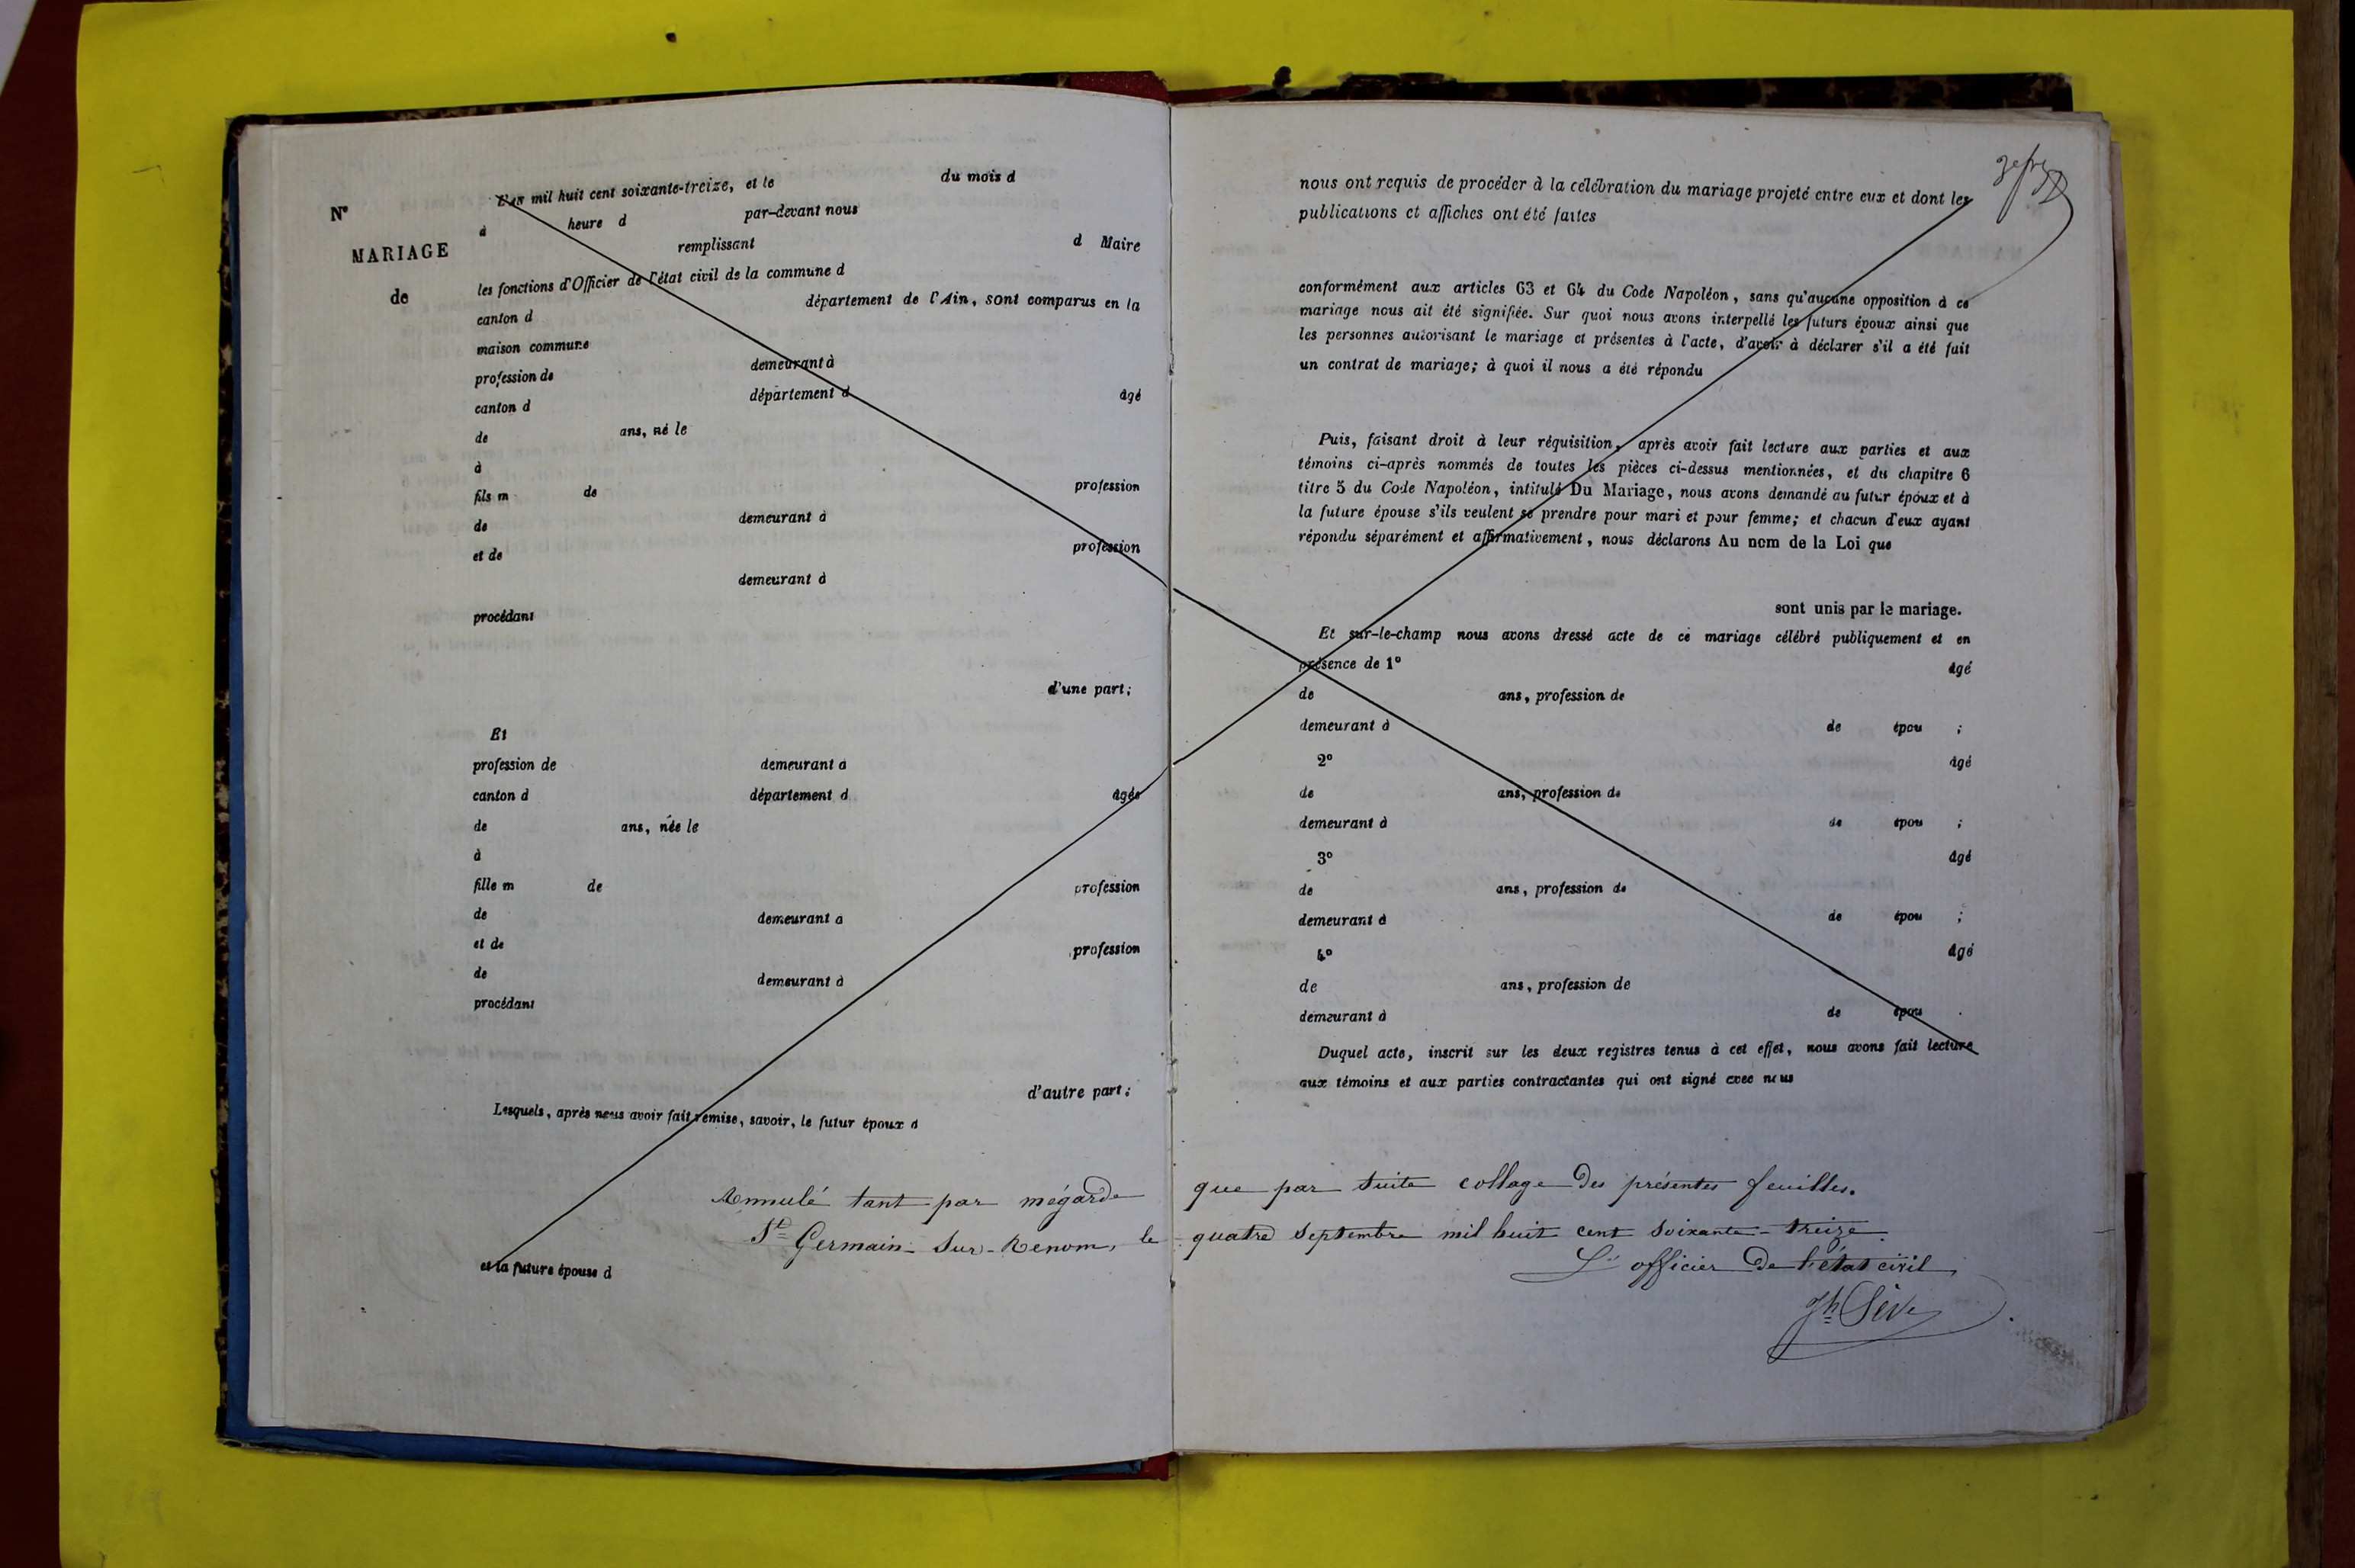 N°
MARIAGE
de
L'an mil huit cent soixante-treize, et le du mois d
à heure d par-devant nous
remplissant d Maire
les fonctions d'Officier de l'état civil de la commune d
canton d département de l'Ain, sont comparus en la
maison commune
profession de demeurant à
canton d département d âgé
de ans, né le
à
fils m de profession
de demeurant à
et de profession
demeurant à
procédant
d'une part;
Et
profession de demeurant à
canton d département d âgée
de ans, née le
à
fille m de profession
de demeurant à
et de profession
de demeurant à
procédant
d'autre part;
Lesquels, après nous avoir fait remise, savoir, le futur époux d
et la future épouse d
nous ont requis de procéder à la célébration du mariage projeté entre eux et dont les
publications et affiches ont été faites
conformément aux articles 63 et 64 du Code Napoléon, sans qu'aucune opposition à ce
mariage nous ait été signifiée. Sur quoi nous avons interpellé les futurs époux ainsi que
les personnes autorisant le mariage et présentes à l'acte, d'avoir à déclarer s'il a été fait
un contrat de mariage; à quoi il nous a été répondu
Puis, faisant droit à leur réquisition, après avoir fait lecture aux parties et aux
témoins ci-après nommés de toutes les pièces ci-dessus mentionnées, et du chapitre 6
titre 5 du Code Napoléon, intitulé Du Mariage, nous avons demandé au futur époux et à
la future épouse s'ils veulent se prendre pour mari et pour femme; et chacun d'eux ayant
répondu séparément et affirmativement, nous déclarons Au nom de la Loi que
sont unis par le mariage.
Et sur-le-champ nous avons dressé acte de ce mariage célébré publiquement et en
présence de 1° âgé
de ans, profession de
demeurant à de épou ;
2° âgé
de ans, profession de
demeurant à de épou ;
3° âgé
de ans, profession de
demeurant à de épou ;
4° âgé
de ans, profession de
demeurant à de épou .
Duquel acte, inscrit sur les deux registres tenus à cet effet, nous avons fait lecture
aux témoins et aux parties contractantes qui ont signé avec nous
Annulé tant par mégarde que par suite collage des présentes feuilles.
St Germain-sur-Renom, le quatre septembre mil huit cent soixante-treize.
L'officier de l'état civil,
Jh Sève